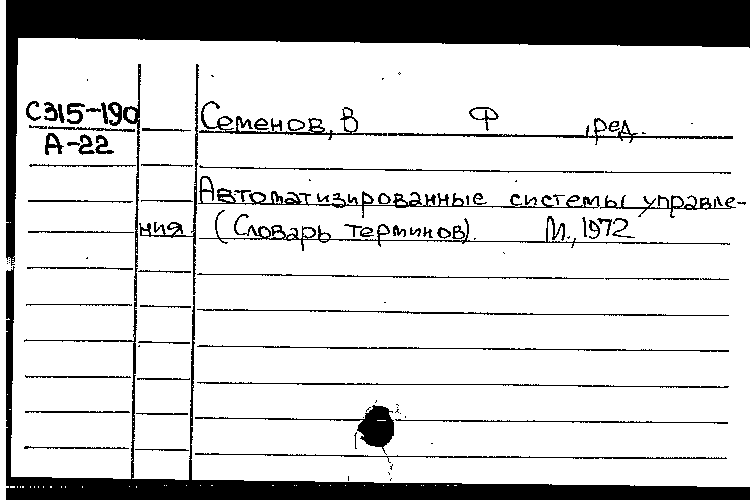 С315-190 Семенов, В Ф ,ред.
А-22
Автоматизированные системы управле-
ния. (Словарь терминов). М., 1972